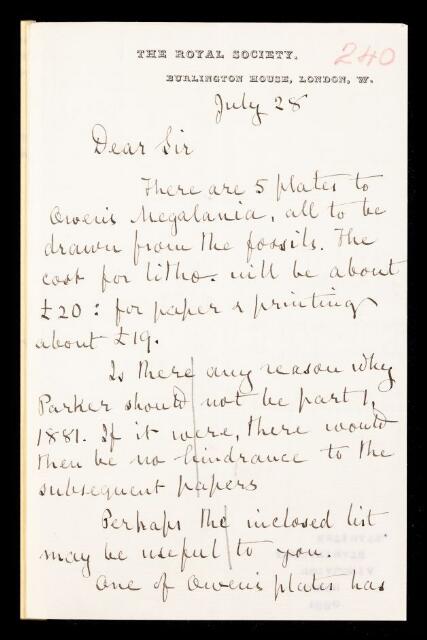 THE ROYAL SOCIETY.
240
BURLINGTON HOUSE, LONDON, W.
July 28
Dear Sir
There are 5 plates to
Owen's Megalania, all to be
drawn from the fossils. The
cost for litho. will be about
£20: for paper & printing
about £19.
Is there any reason why
Parker should not be part 1,
1881. If it were, there would
then be no hindrance to the
subsequent papers
Perhaps the inclosed list
may be useful to you.
One of Owen's plates has